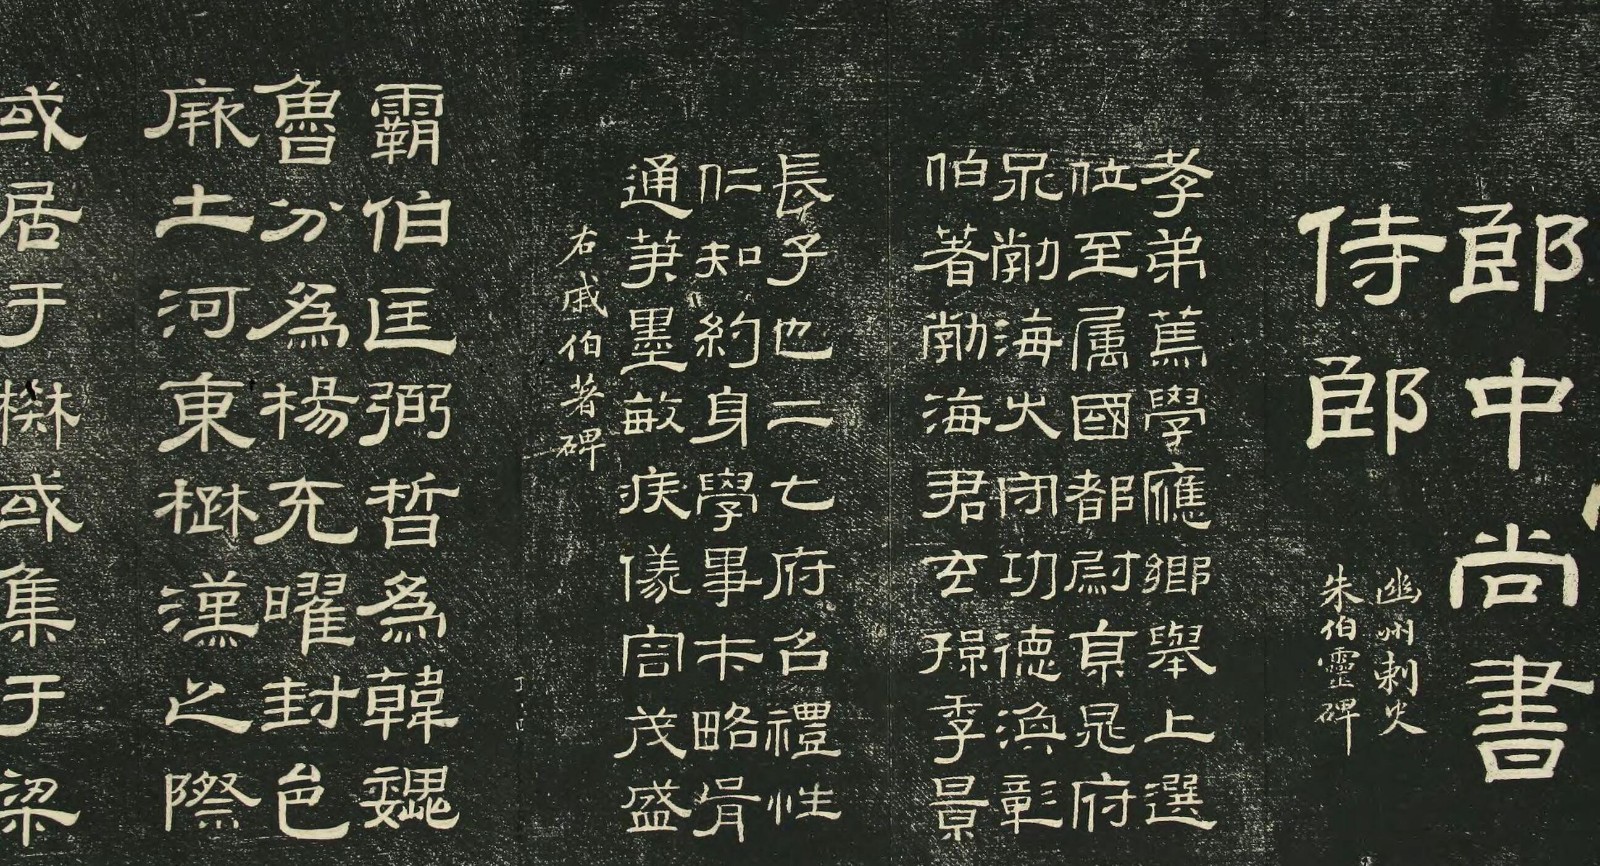 郎中尚書
侍郎
幽州刺史
朱伯靈碑
孝弟篤學應鄉舉上選
位至属國都尉府
勃海太守功德渙彰
伯著勃海君玄孫季景
長子也二七府名禮性
仁知約身學事略
通墨敏疾儀茂盛
右戚伯著碑
霸伯匡弼晳為韓魏
魯分為楊充曜封邑
厥土河東楙漢之際
或居于樊或集于梁